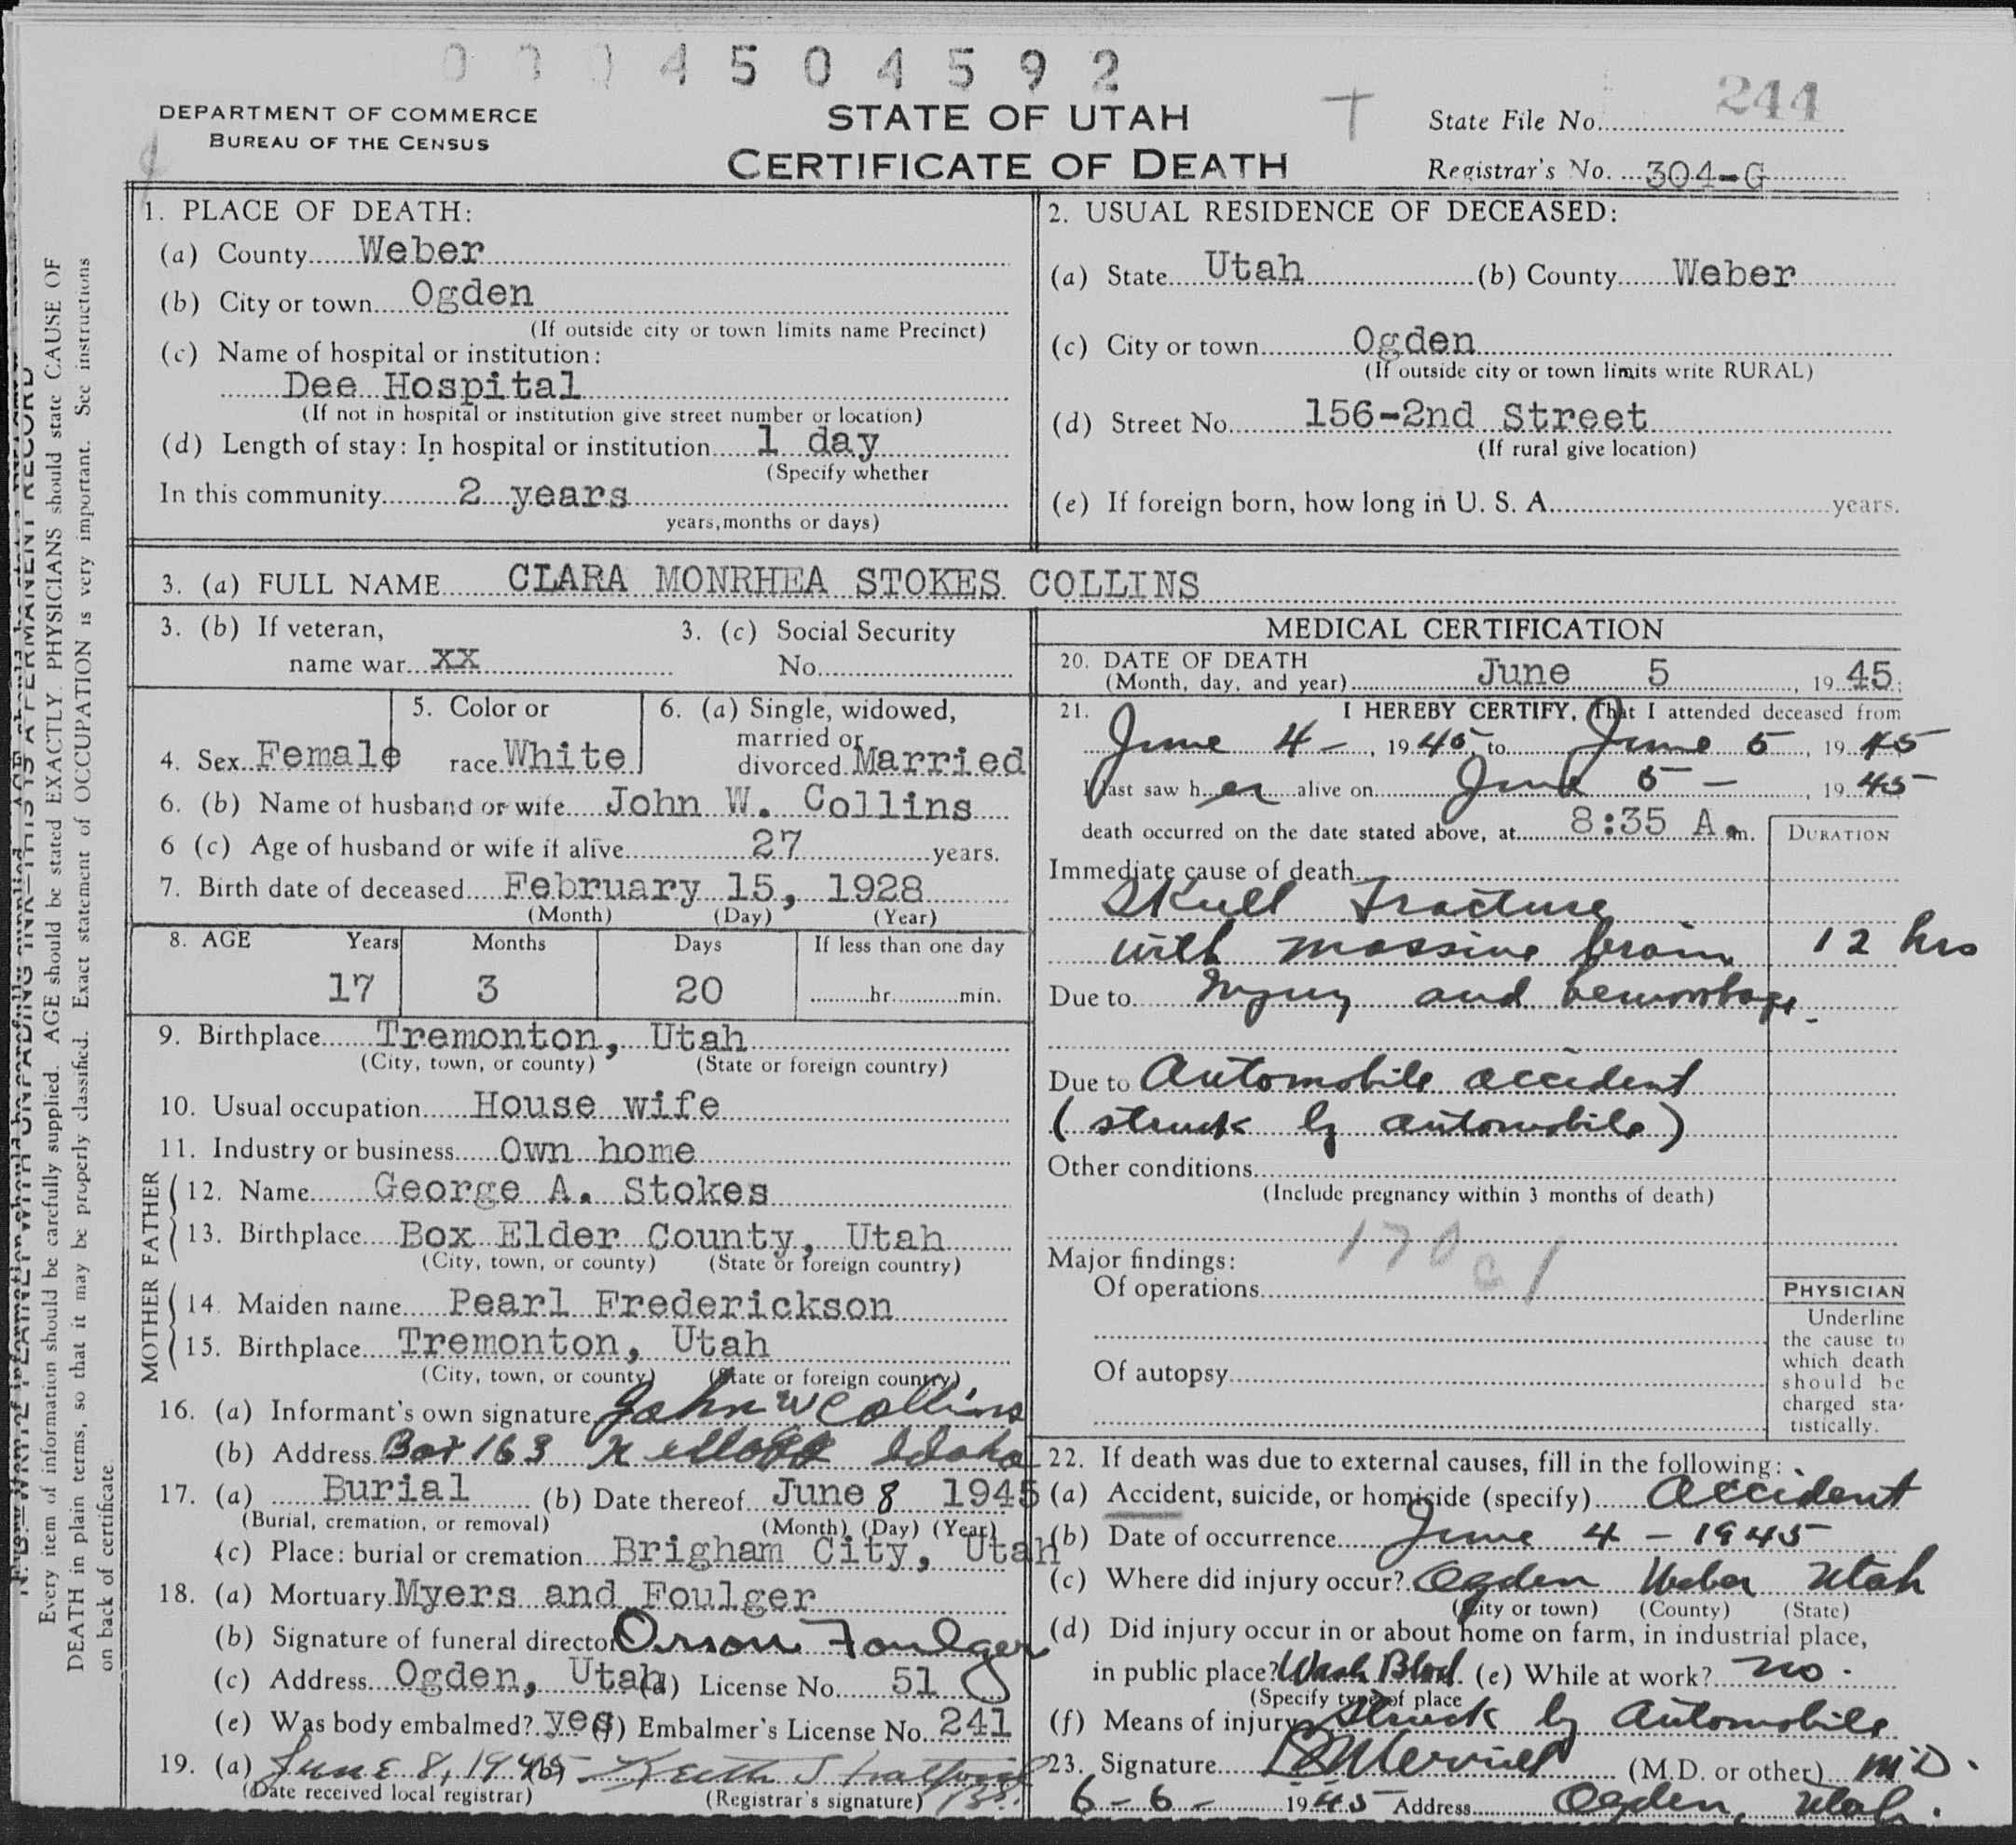 0 0 0 4 5 0 4 5 9 2
DEPARTMENT OF COMMERCE
BUREAU OF THE CENSUS
STATE OF UTAH
CERTIFICATE OF DEATH
T
State File No. 244
Registrar's No. 304-G
1. PLACE OF DEATH:
(a) County Weber
(b) City or town Ogden
(If outside city or town limits name Precinct)
(c) Name of hospital or institution:
Dee Hospital
(If not in hospital or institution give street number or location)
(d) Length of stay: In hospital or institution 1 day
(Specify whether
In this community 2 years
years, months or days)
2. USUAL RESIDENCE OF DECEASED:
(a) State Utah (b) County Weber
(c) City or town Ogden
(If outside city or town limits write RURAL)
(d) Street No. 156-2nd Street
(If rural give location)
(e) If foreign born, how long in U. S. A. years.
3. (a) FULL NAME CLARA MONRHEA STOKES COLLINS
3. (b) If veteran,
name war XX
3. (c) Social Security
No.
4. Sex Female
5. Color or
race White
6. (a) Single, widowed,
married or
divorced Married
6. (b) Name of husband or wife John W. Collins
6 (c) Age of husband or wife if alive 27 years.
7. Birth date of deceased February 15, 1928
(Month) (Day) (Year)
8. AGE Years Months Days If less than one day
17 3 20 hr. min.
9. Birthplace Tremonton, Utah
(City, town, or county) (State or foreign country)
10. Usual occupation House wife
11. Industry or business Own home
FATHER
12. Name George A. Stokes
13. Birthplace Box Elder County, Utah
(City, town, or county) (State or foreign country)
MOTHER
14. Maiden name Pearl Frederickson
15. Birthplace Tremonton, Utah
(City, town, or county) (State or foreign country)
16. (a) Informant's own signature John W Collins
(b) Address Box 163 Kellogg Idaho
17. (a) Burial (b) Date thereof June 8 1945
(Burial, cremation, or removal) (Month) (Day) (Year)
(c) Place: burial or cremation Brigham City, Utah
18. (a) Mortuary Myers and Foulger
(b) Signature of funeral director Orson Foulger
(c) Address Ogden, Utah (d) License No. 51
(e) Was body embalmed? yes (f) Embalmer's License No. 241
19. (a) June 8, 1945 (b) Keith Stratford
(Date received local registrar) (Registrar's signature)
MEDICAL CERTIFICATION
20. DATE OF DEATH
(Month, day, and year) June 5, 19 45
21. I HEREBY CERTIFY, That I attended deceased from
June 4 -, 19 45, to June 5, 19 45
I last saw her alive on June 5 -, 19 45
death occurred on the date stated above, at 8:35 A. m.
DURATION
Immediate cause of death
Skull Fracture
with massive brain 12 hrs
Due to injury and hemorrhage.
Due to Automobile accident
(struck by automobile)
Other conditions
(Include pregnancy within 3 months of death)
170 c 1
Major findings:
Of operations
Of autopsy
PHYSICIAN
Underline
the cause to
which death
should be
charged sta-
tistically.
22. If death was due to external causes, fill in the following:
(a) Accident, suicide, or homicide (specify) Accident
(b) Date of occurrence June 4 - 1945
(c) Where did injury occur? Ogden Weber Utah
(City or town) (County) (State)
(d) Did injury occur in or about home on farm, in industrial place,
in public place? Wash Blvd. (e) While at work? no.
(Specify type of place
(f) Means of injury Struck by Automobile
23. Signature Merrill (M.D. or other) M.D.
6-6- 1945 Address Ogden, Utah.
Every item of information should be carefully supplied. AGE should be stated EXACTLY. PHYSICIANS should state CAUSE OF
DEATH in plain terms, so that it may be properly classified. Exact statement of OCCUPATION is very important. See instructions
on back of certificate.